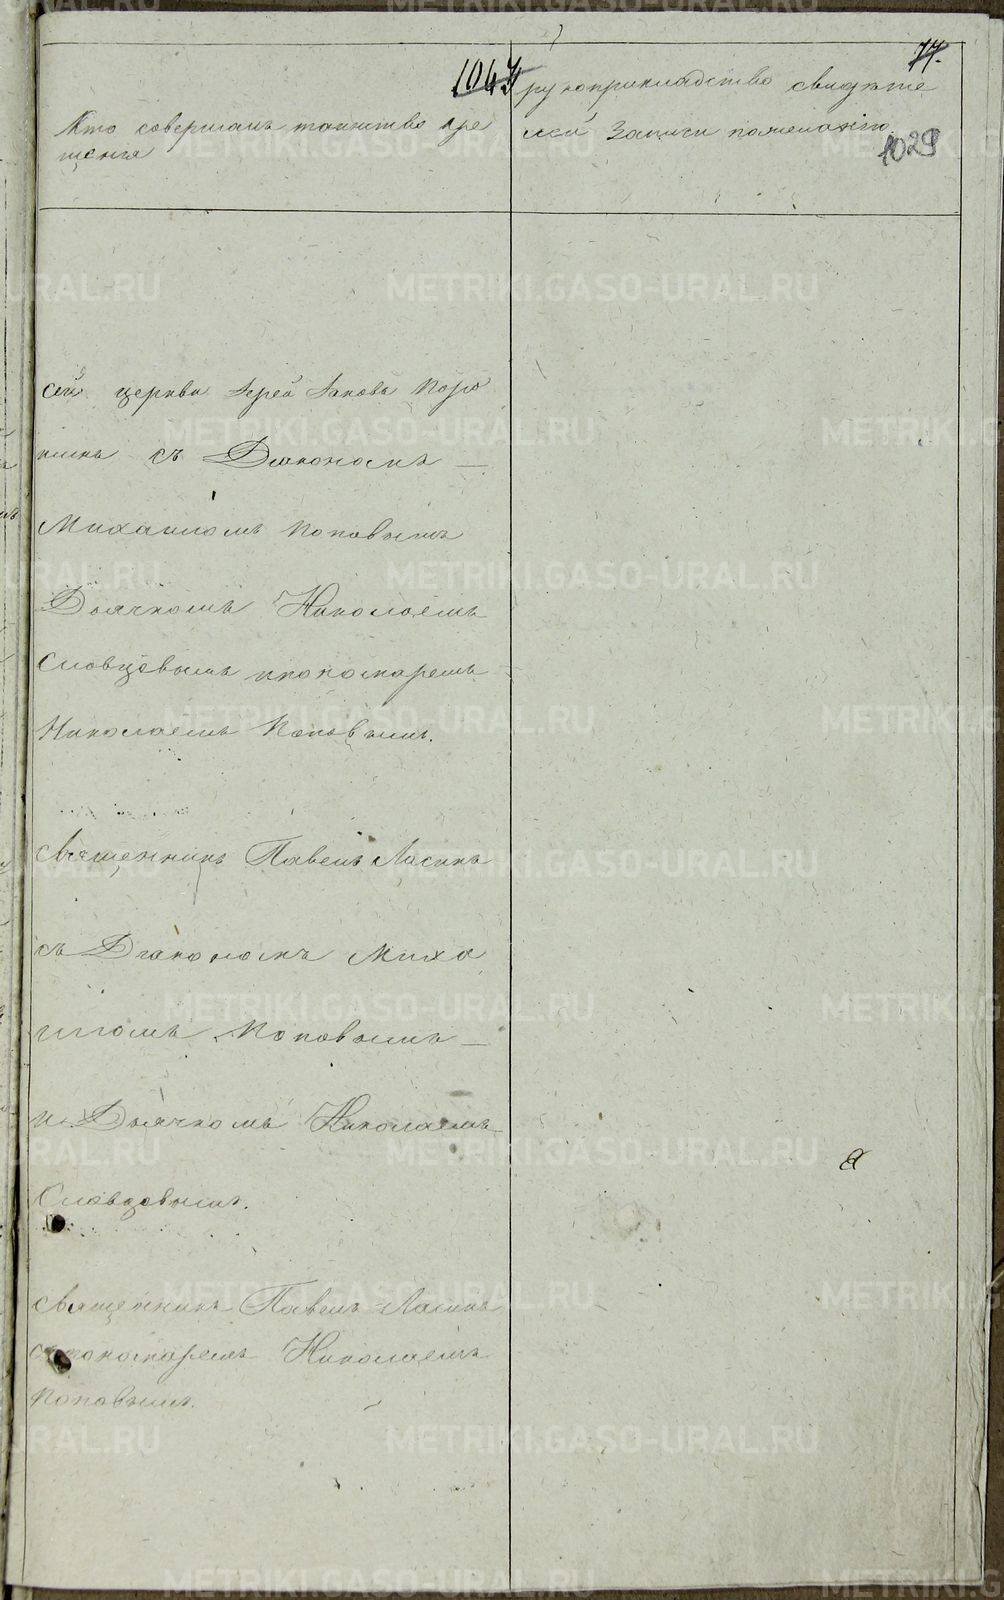 77.
1047
1029
Кто совершалъ таинство кре
щенія
рукоприкладство свидѣте
лей записи по желанію
сей церкви Іерей Іаковъ
съ Діакономъ —
Михаиломъ Поповымъ
Дьячкомъ Николаемъ
Словцовымъ и пономаремъ
Николаемъ Поповымъ.
Священникъ Павелъ Ласинъ
съ Діакономъ Миха
иломъ Поповымъ —
и Дьячкомъ Николаемъ
Словцовымъ.
Священникъ Павелъ Ласинъ
съ пономаремъ Николаемъ
Поповымъ.
METRIKI.GASO-URAL.RU